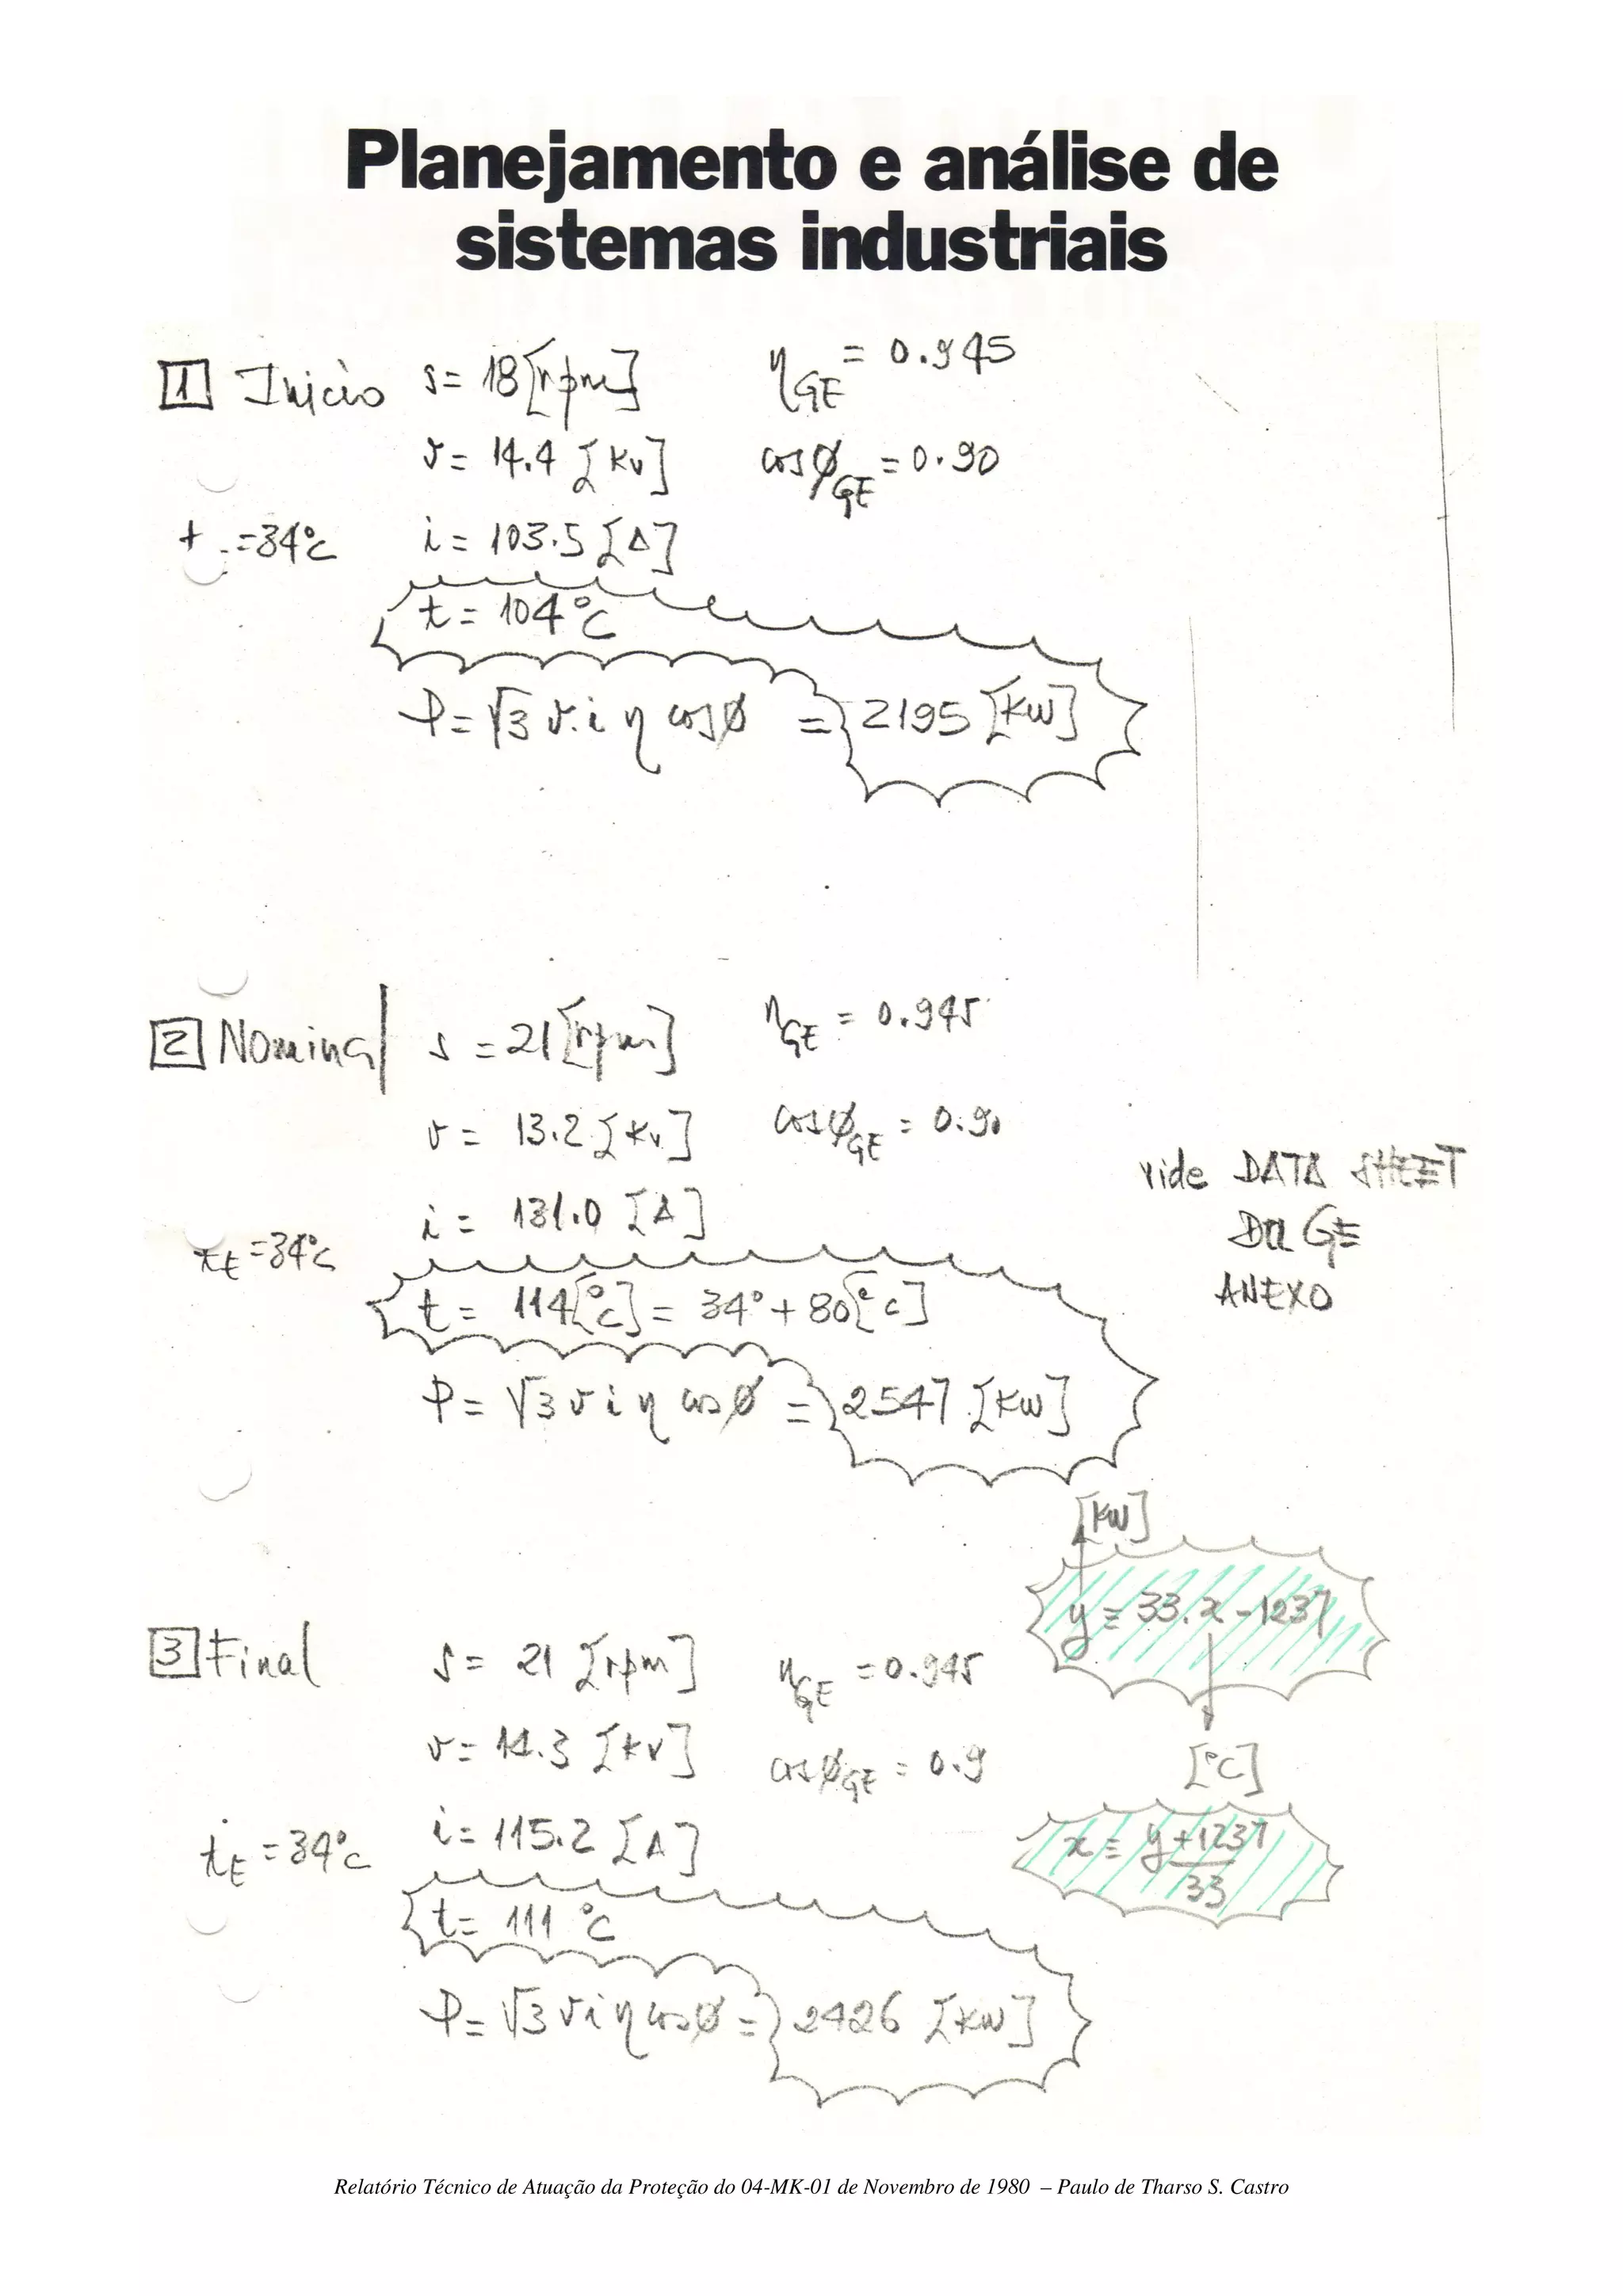 Planejamento e análise de
sistemas industriais
1 Inicio s= 18[rpm] η_GE = 0.945
v= 14.4 [Kv] cosφ_GE = 0.90
t =34°c i= 103.5 [A]
t= 104°C
P=√3 v.i η cosφ = 2195 [KW]
2 Nominal s =21[rpm] η_GE = 0.945
v= 13.2 [Kv] cosφ_GE = 0.90
vide DATA SHEET
i= 131.0 [A]
DA GE
t_E =34°c
ANEXO
t= 114[°C]= 34°+80[°c]
P= √3 v i η cosφ = 2547 [KW]
[KW]
y= 33.x-1237
3 Final s= 21 [rpm] η_GE =0.945
v= 14.3 [KV] cosφ_GE = 0.9
[°C]
t_E =34°c i= 115.2 [A]
x= y+1237
33
t= 111 °C
P= √3 v i η cosφ = 2426 [KW]
Relatório Técnico de Atuação da Proteção do 04-MK-01 de Novembro de 1980 – Paulo de Tharso S. Castro